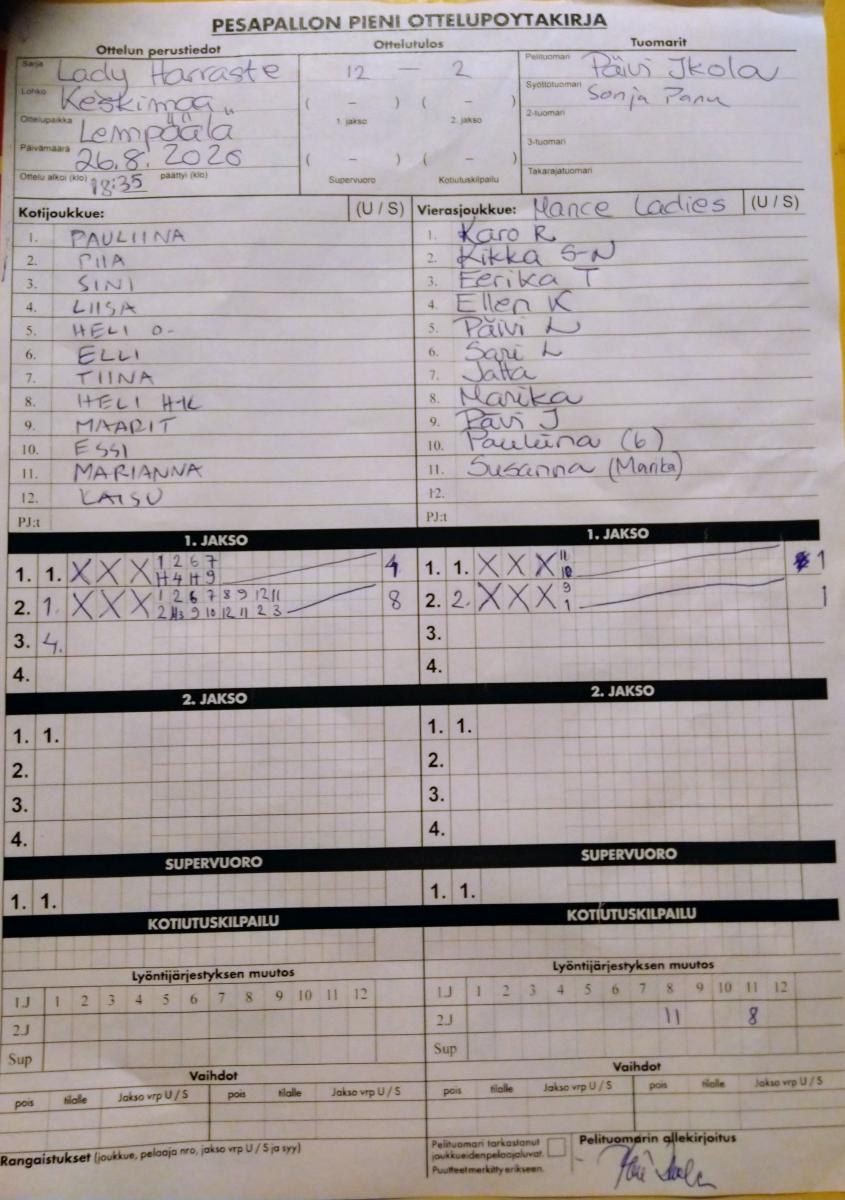 PESAPALLON PIENI OTTELUPOYTAKIRJA
Ottelun perustiedot
Ottelutulos
Tuomarit
Sarja Lady Harraste
12 – 2
Pelituomari Päivi Ikola
Lohko Keskimaa
( – ) ( – )
Syöttötuomari Sonja Panu
Ottelupaikka Lempäälä
1. jakso 2. jakso
2-tuomari
Päivämäärä 26.8.2020
( – ) ( – )
3-tuomari
Ottelu alkoi (klo) 18:35 päättyi (klo)
Supervuoro Kotiutuskilpailu
Takarajatuomari
Kotijoukkue: (U / S)
1. PAULIINA
2. PIIA
3. SINI
4. LIISA
5. HELI O-
6. ELLI
7. TIINA
8. HELI H-K
9. MAARIT
10. ESSI
11. MARIANNA
12. KAISU
PJ:t
Vierasjoukkue: Mance Ladies (U / S)
1. Karo R
2. Kikka S-N
3. Eerika T
4. Ellen K
5. Päivi L
6. Sari L
7. Jatta
8. Marika
9. Päivi J
10. Pauliina (6)
11. Susanna (Marika)
12.
PJ:t
1. JAKSO
1. 1. X X X 1 2 6 7
H 4 H 9
4
2. 1. X X X 1 2 6 7 8 9 12 11
9 10 12 11 2 3
8
3. 4.
4.
1. JAKSO
1. 1. X X X 11
10
1
2. 2. X X X 9
1
1
3.
4.
2. JAKSO
1. 1.
2.
3.
4.
2. JAKSO
1. 1.
2.
3.
4.
SUPERVUORO
1. 1.
SUPERVUORO
1. 1.
KOTIUTUSKILPAILU
KOTIUTUSKILPAILU
Lyöntijärjestyksen muutos
1.J 1 2 3 4 5 6 7 8 9 10 11 12
2.J
Sup
Lyöntijärjestyksen muutos
1.J 1 2 3 4 5 6 7 8 9 10 11 12
2.J 11 8
Sup
Vaihdot
pois tilalle Jakso vrp U / S pois tilalle Jakso vrp U / S
Vaihdot
pois tilalle Jakso vrp U / S pois tilalle Jakso vrp U / S
Rangaistukset (joukkue, pelaaja nro, jakso vrp U / S ja syy)
Pelituomari tarkastanut
joukkueidenpelaajaluvat.
Puutteet merkitty erikseen.
Pelituomarin allekirjoitus